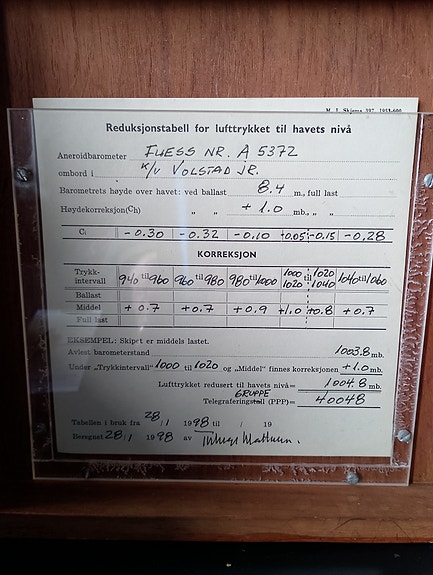 M. I. Skjema 397. 1953-600
Reduksjonstabell for lufttrykket til havets nivå
Aneroidbarometer FUESS NR. A 5372
ombord i K/V VOLSTAD JR.
Barometrets høyde over havet: ved ballast 8.4 m., full last
Høydekorreksjon (Ch) „ „ +1.0 mb., „ „
Ci -0.30 -0.32 -0.10 +0.05 -0.15 -0.28
KORREKSJON
Trykk-intervall 940 til 960 960 til 980 980 til 1000 1000 1020 til 1020 1040 1040 til 1060
Ballast
Middel +0.7 +0.7 +0.9 +1.0 +0.8 +0.7
Full last
EKSEMPEL: Skipet er middels lastet.
Avlest barometerstand 1003.8 mb.
Under „Trykkintervall" 1000 til 1020 og „Middel" finnes korreksjonen +1.0 mb.
Lufttrykket redusert til havets nivå= 1004.8 mb.
GRUPPE
Telegraferingstall (PPP)= 40048
Tabellen i bruk fra 28/1 1998 til / 19
Beregnet 28/1 1998 av